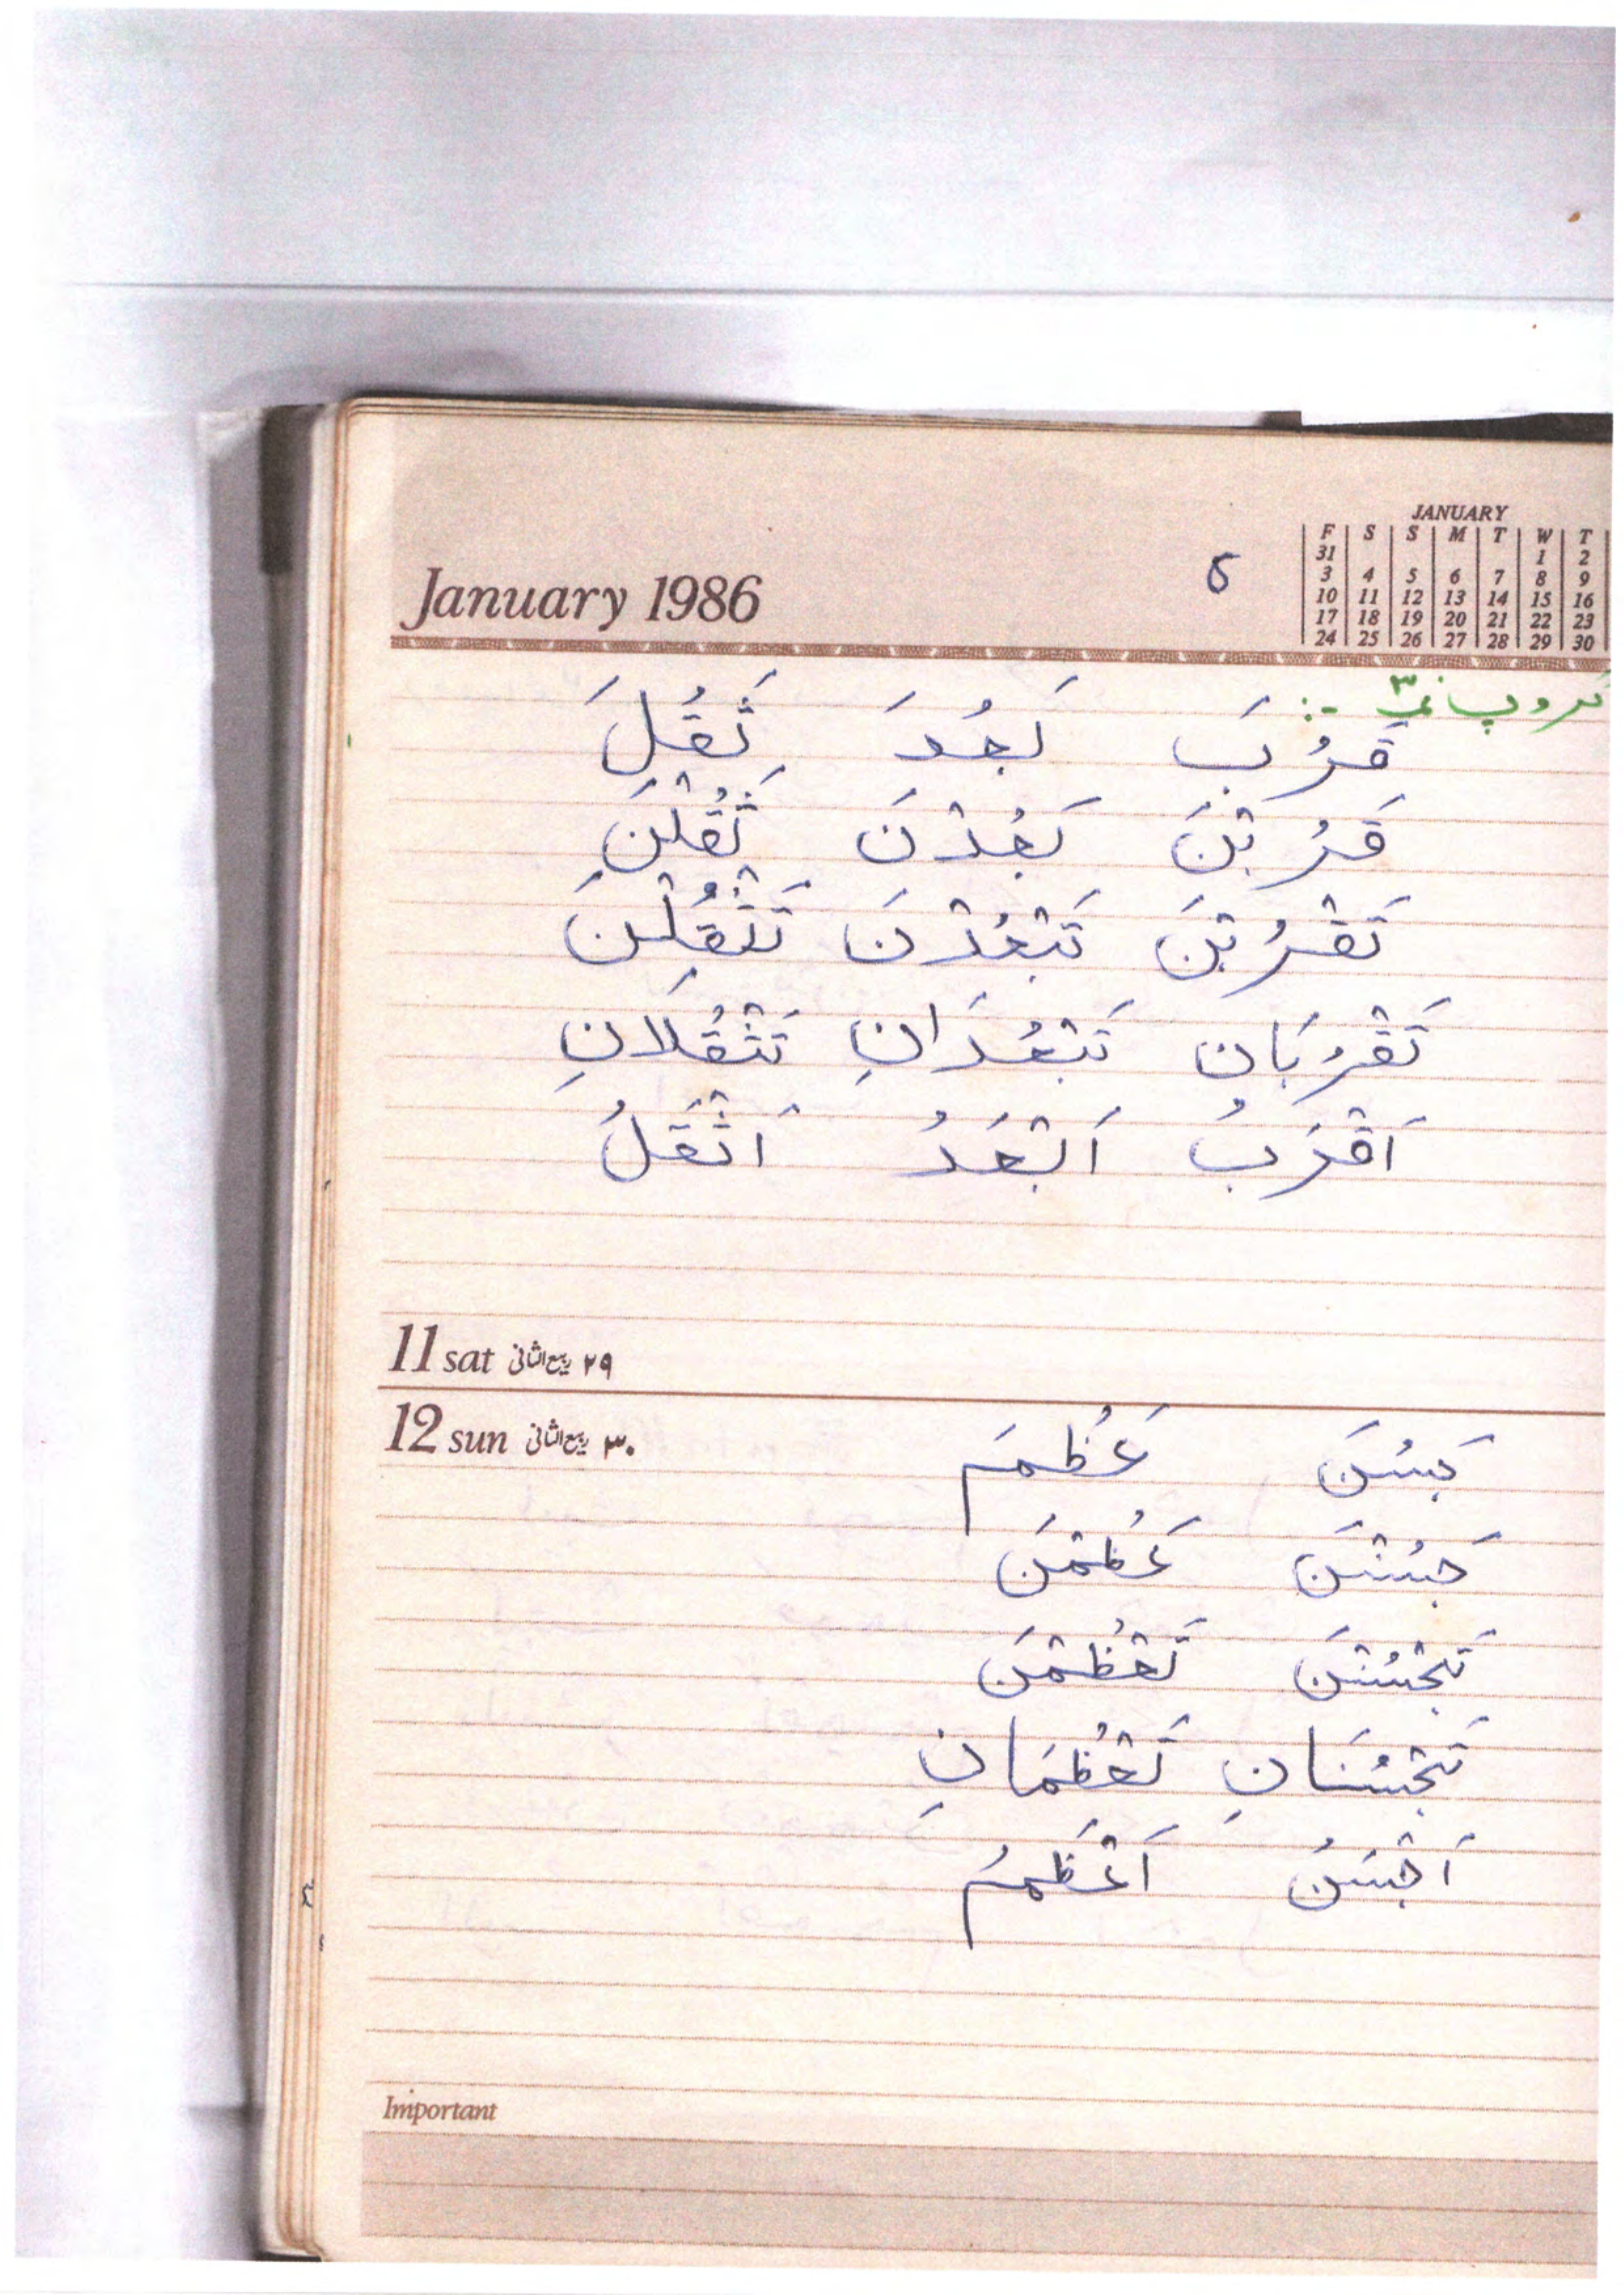 JANUARY
F S S M T W T
31 1 2
3 4 5 6 7 8 9
10 11 12 13 14 15 16
17 18 19 20 21 22 23
24 25 26 27 28 29 30
January 1986
۵
گروپ نمبر ۳ :-
قَرُبَ بَعُدَ ثَقُلَ
قَرُبْنَ بَعُدْنَ ثَقُلْنَ
تَقْرُبْنَ تَبْعُدْنَ تَثْقُلْنَ
تَقْرُبَانِ تَبْعُدَانِ تَثْقُلَانِ
اَقْرَبُ اَبْعَدُ اَثْقَلُ
11 sat ۲۹ ربیع الثانی
12 sun ۳۰ ربیع الثانی
حَسُنَ عَظُمَ
حَسُنْنَ عَظُمْنَ
تَحْسُنْنَ تَعْظُمْنَ
تَحْسُنَانِ تَعْظُمَانِ
اَحْسَنُ اَعْظَمُ
Important